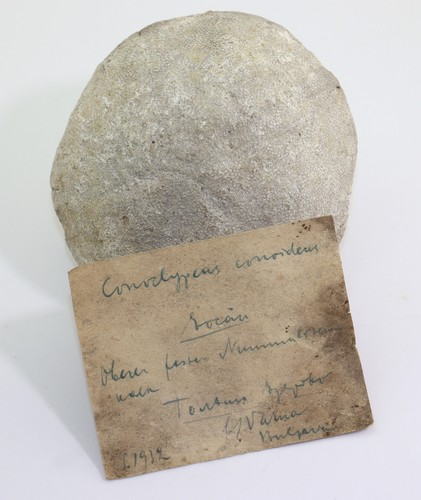 Conoclypeus conoideus
Eocän
Oberer fester Nummuliten
kalk
b/ Varna
Bulgarien
1912